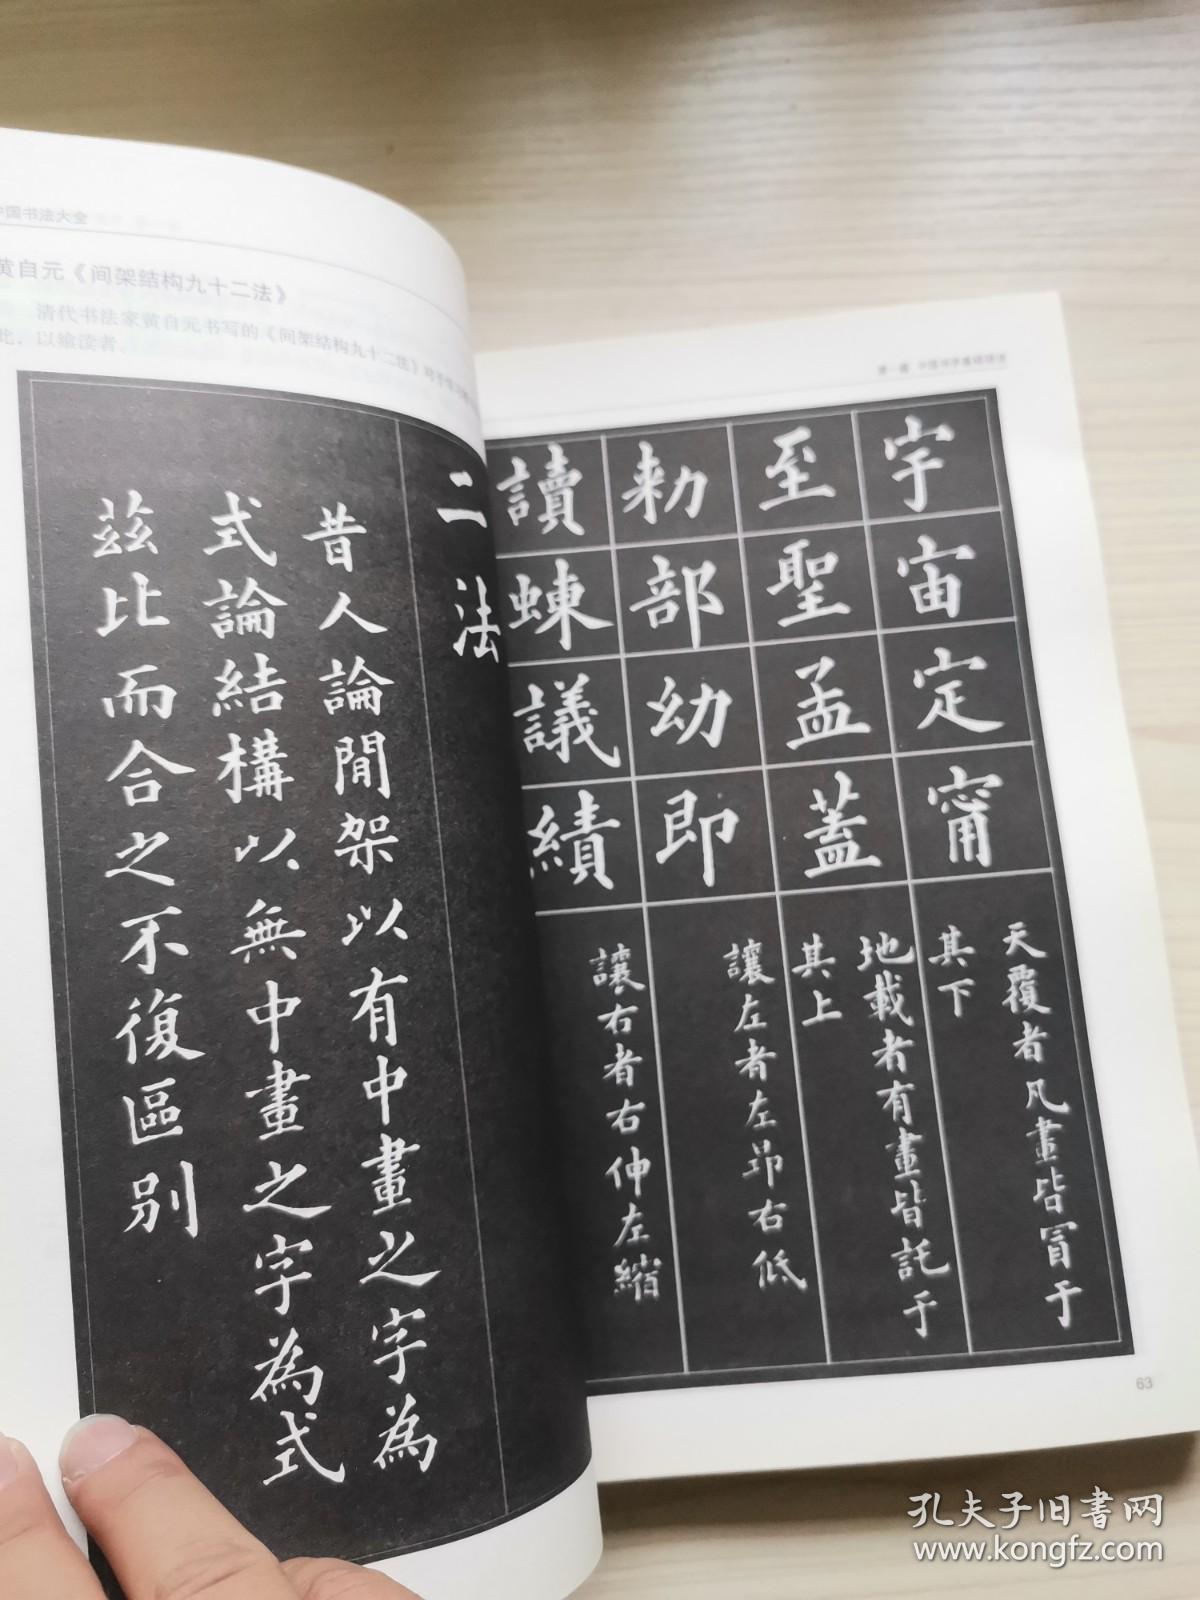 中国书法大全
黄自元《间架结构九十二法》
清代书法家黄自元书写的《间架结构九十二法》
此，以飨读者。
二法
昔人論間架以有中畫之字為
式論結構以無中畫之字為式
茲比而合之不復區別
宇宙定甯
天覆者凡畫皆冒于
其下
至聖孟蓋
地載者有畫皆託于
其上
勅部幼即
讓左者左昂右低
讀蝀議績
讓右者右伸左縮
63
孔夫子旧书网
www.kongfz.com